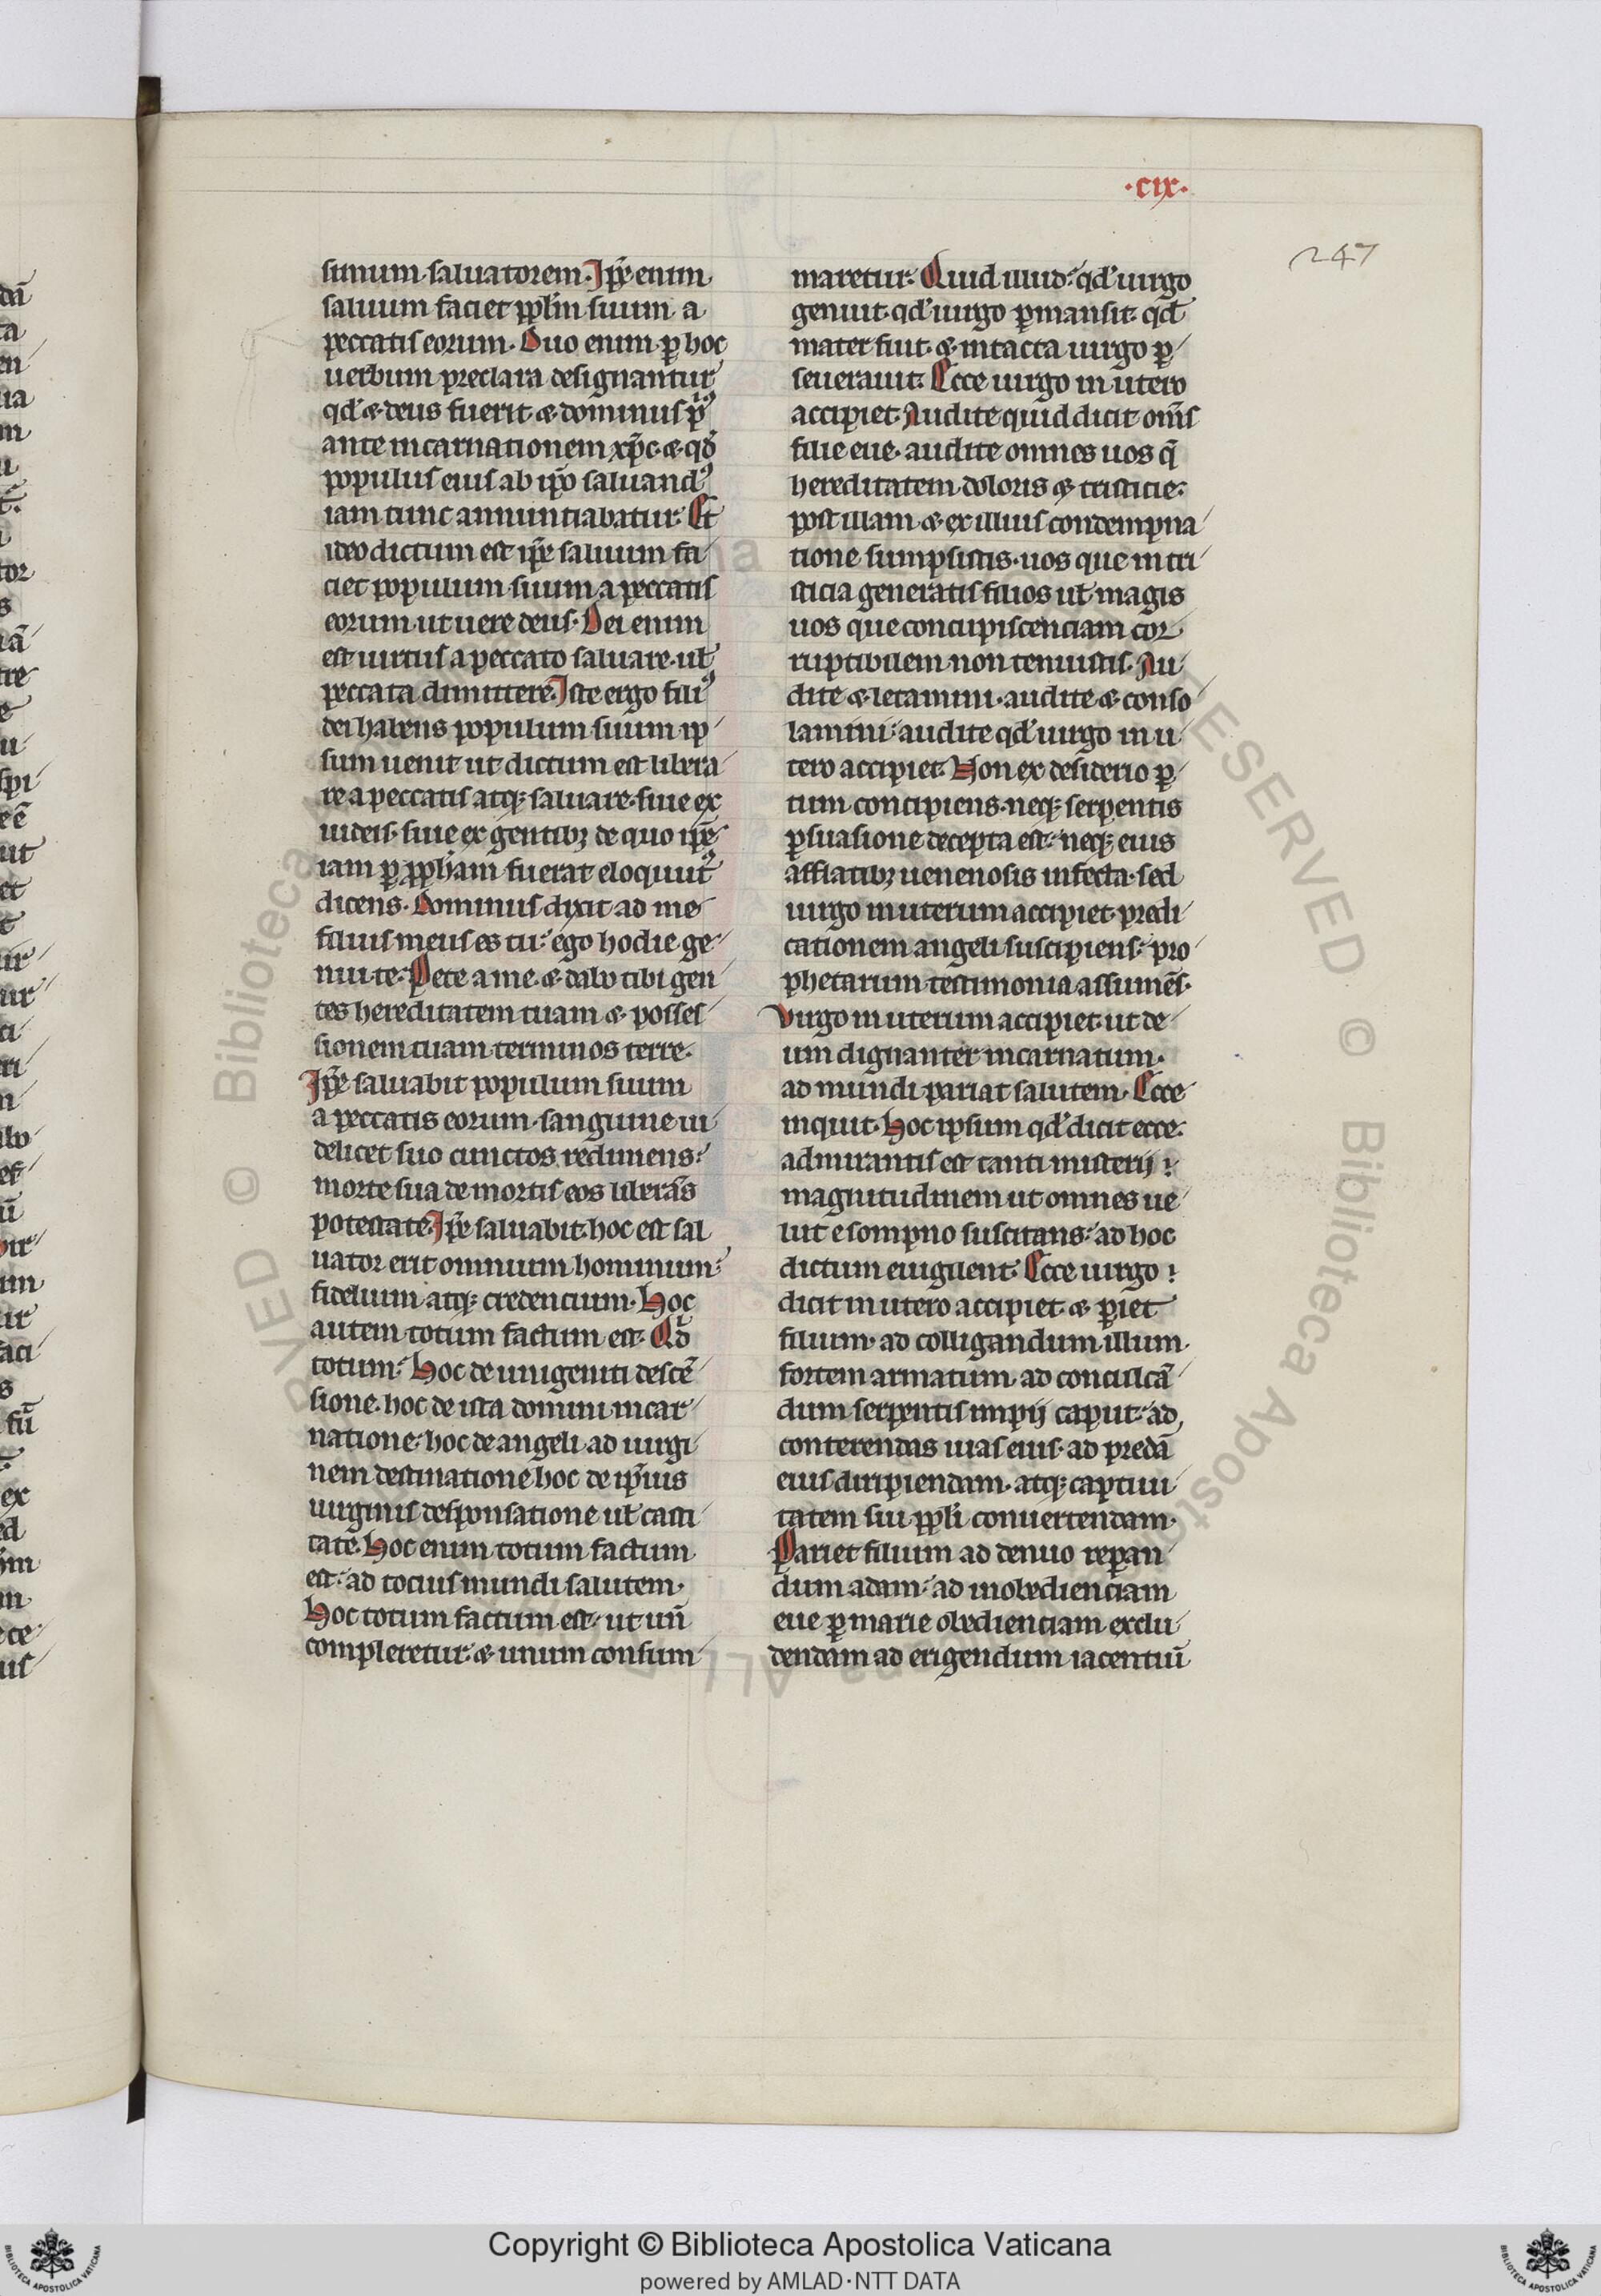 ·cix·
247
simum saluatorem. Ip̄e enim
saluum faciet pplm̄ suum a
peccatis eorum. Duo enim ꝑ hoc
uerbum preclara designantur
qd̓ & deus fuerit & dominus
ante incarnationem xp̄c & qd̓
populus eius ab ip̄o saluandꝰ
iam tunc annuntiabatur. Et
ideo dictum est ip̄e saluum fa
ciet populum suum a peccatis
eorum ut uere deus. Dei enim
est uirtus a peccato saluare ul̓
peccata dimittere. Iste ergo filiꝰ
dei habens populum suum ip
sum uenit ut dictum est libera
re a peccatis atq; saluare. siue ex
iudeis. siue ex gentibꝫ de quo ip̄e
iam ꝑ ppħam fuerat eloquutꝰ
dicens. Dominus dixit ad me
filius meus es tu: ego hodie ge
nui te. Pete a me & dabo tibi gen
tes hereditatem tuam & posses
sionem tuam terminos terre.
Ip̄e saluabit populum suum
a peccatis eorum. sanguine ui
delicet suo cunctos redimens:
morte sua de mortis eos liberās
potestate. Ip̄e saluabit. hoc est sal
uator erit omnium hominum:
fidelium atq; credencium. Hoc
autem totum factum est. Qd̓
totum: Hoc de unigeniti descē
sione. hoc de ista domini incar
natione: hoc de angeli ad uirgi
nem destinatione hoc de ip̄ius
uirginis desponsatione ul̓ casti
tate. Hoc enim totum factum
est: ad tocius mundi salutem.
Hoc totum factum est: ut un̄
completetur: & unum consum
maretur. Quid illud: qd̓ uirgo
genuit. qd̓ uirgo ꝑmansit. qd̓
mater fuit. & intacta uirgo ꝑ
seuerauit. Ecce uirgo in utero
accipiet. Audite quid dicit om̄s
filie eue. audite omnes uos q̄
hereditatem doloris & tristicie:
post illam & ex illius condempna
tione sumpsistis. uos que in tri
sticia generatis filios ul̓ magis
uos que concupiscenciam cor
ruptibilem non tenuistis. Au
dite & letamini. audite & conso
lamini: audite qd̓ uirgo in u
tero accipiet. Non ex desiderio ꝑ
tum concipiens. neq; serpentis
ꝑsuasione decepta est: neq; eius
afflatibꝫ uenenosis infecta. sed
uirgo in uterum accipiet. predi
cationem angeli suscipiens: pro
phetarum testimonia assumēs.
Virgo in uterum accipiet. ut de
um dignanter incarnatum.
ad mundi pariat salutem. Ecce
inquit. Hoc ipsum qd̓ dicit ecce.
admirantis est tanti misterij
magnitudinem ut omnes ue
lut e sompno suscitans: ad hoc
dictum euigilent. Ecce uirgo
dicit in utero accipiet & ꝑiet
filium. ad colligandum illum
fortem armatum. ad conculcā
dum serpentis impij caput: ad
conterendas uias eius. ad predā
eius diripiendam. atq; captiui
tatem sui ppl̓i conuertendam.
Pariet filium ad denuo reparan
dum adam: ad inobedienciam
eue ꝑ marie obedienciam exclu
dendam ad erigendum iacentiū
Copyright © Biblioteca Apostolica Vaticana
powered by AMLAD·NTT DATA